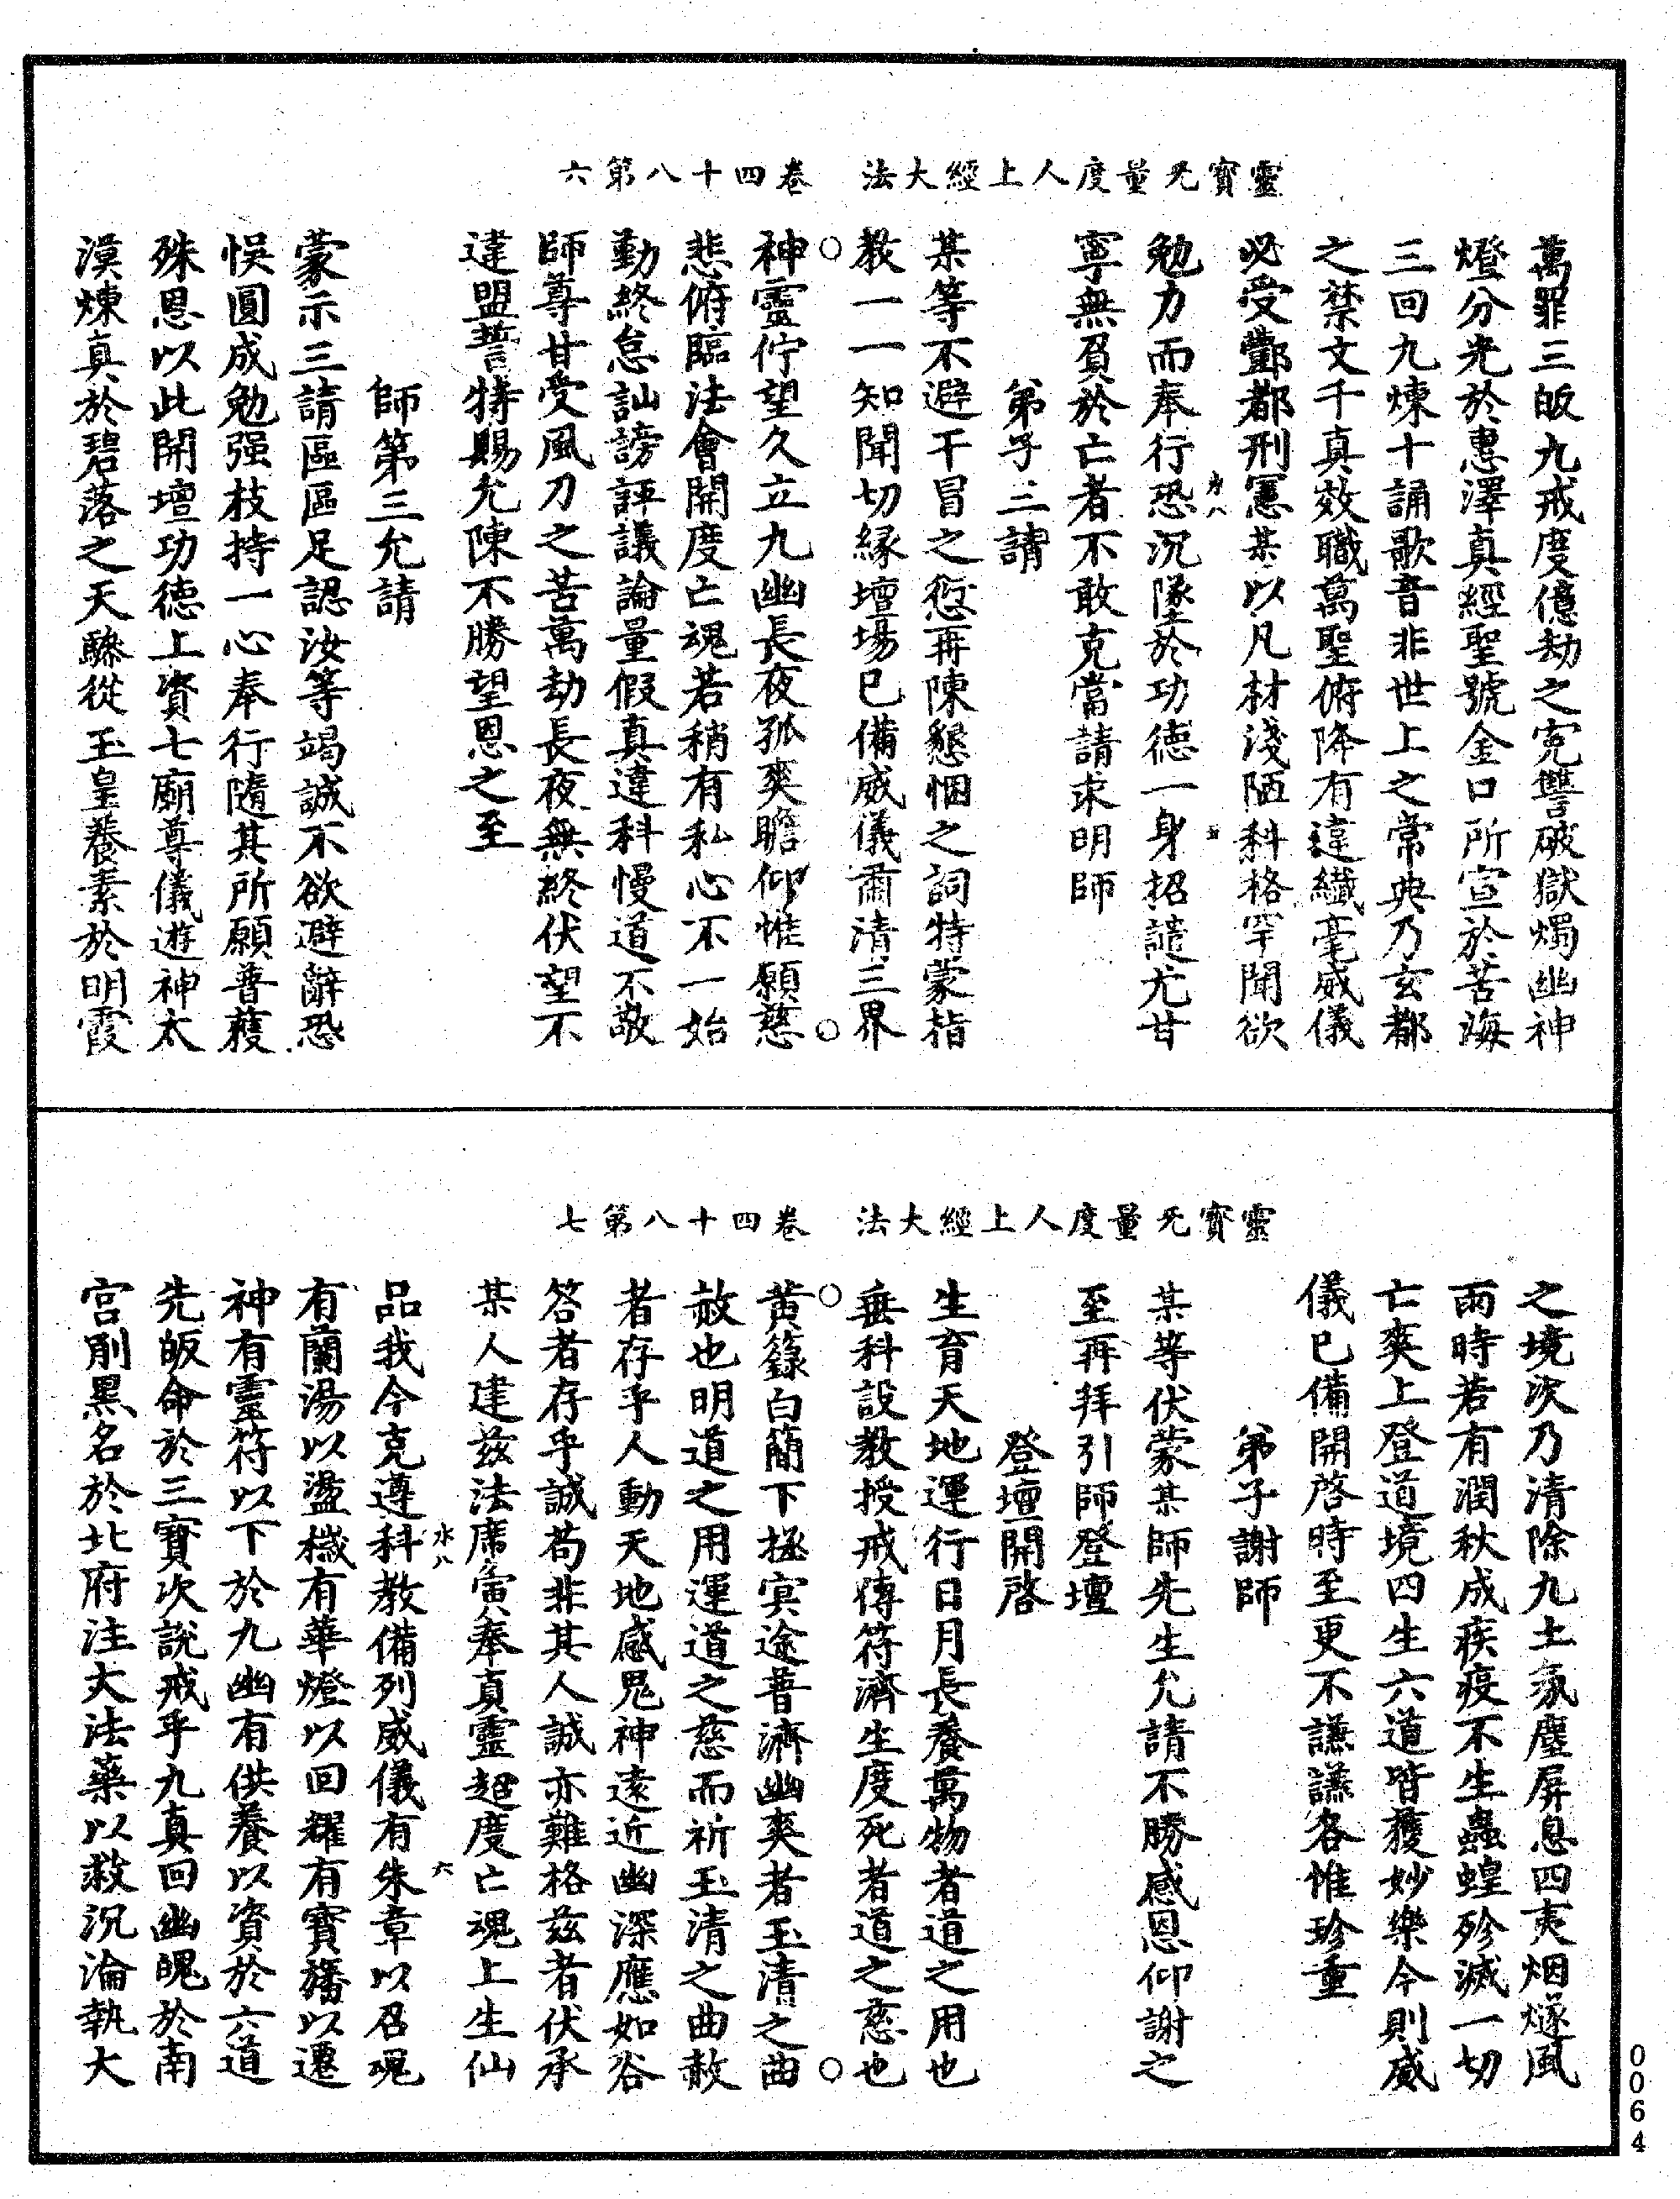 靈寶无量度人上經大法　卷四十八第六
萬罪三皈九戒度億劫之寃讐破獄燭幽神
燈分光於惠澤真經聖號金口所宣於苦海
三回九煉十誦歌音非世上之常典乃玄都
之禁文千真效職萬聖俯降有違纖毫威儀
必受酆都刑憲某以凡材淺陋科格罕聞欲
勉力而奉行恐沉墜於功德一身招譴尤甘
寧無負於亡者不敢克當請求明師
弟子三請
某等不避干冒之愆再陳懇悃之詞特蒙指
教一一知聞切緣壇場巳備威儀肅清三界
神靈佇望久立九幽長夜孤爽瞻仰惟願慈
悲俯臨法會開度亡魂若稍有私心不一始
勤終怠訕謗評議論量假真違科慢道不敬
師尊甘受風刀之苦萬劫長夜無終伏望不
違盟誓特賜允陳不勝望恩之至
師第三允請
蒙示三請區區足認汝等竭誠不欲避辭恐
悞圓成勉强枝持一心奉行隨其所願普蒦
殊恩以此開壇功德上資七廟尊儀遊神太
漠煉真於碧落之天驂從玉皇養素於明霞
靈寶无量度人上經大法　卷四十八第七
之境次乃清除九土氛塵屏息四夷烟燧風
雨時若有潤秋成疾疫不生蟲蝗殄滅一切
亡爽上登道境四生六道皆獲妙樂今則威
儀巳備開啓時至更不謙謙各惟珍重
弟子謝師
某等伏蒙某師先生允請不勝感恩仰謝之
至再拜引師登壇
登壇開啓
生育天地運行日月長養萬物者道之用也
垂科設教授戒傳符濟生度死者道之慈也
黃籙白簡下拯冥途普濟幽爽者玉清之曲
赦也明道之用運道之慈而祈玉清之曲赦
者存乎人動天地感鬼神遠近幽深應如谷
答者存乎誠苟非其人誠亦難格兹者伏承
某人建兹法席寅奉真靈超度亡魂上生仙
品我今克遵科教備列威儀有朱章以召魂
有蘭湯以盪穢有華燈以回耀有寶旛以遷
神有靈符以下於九幽有供養以資於六道
先皈命於三寶次說戒乎九真回幽魄於南
宮削黑名於北府注大法藥以救沉淪執大
水八
六
0064